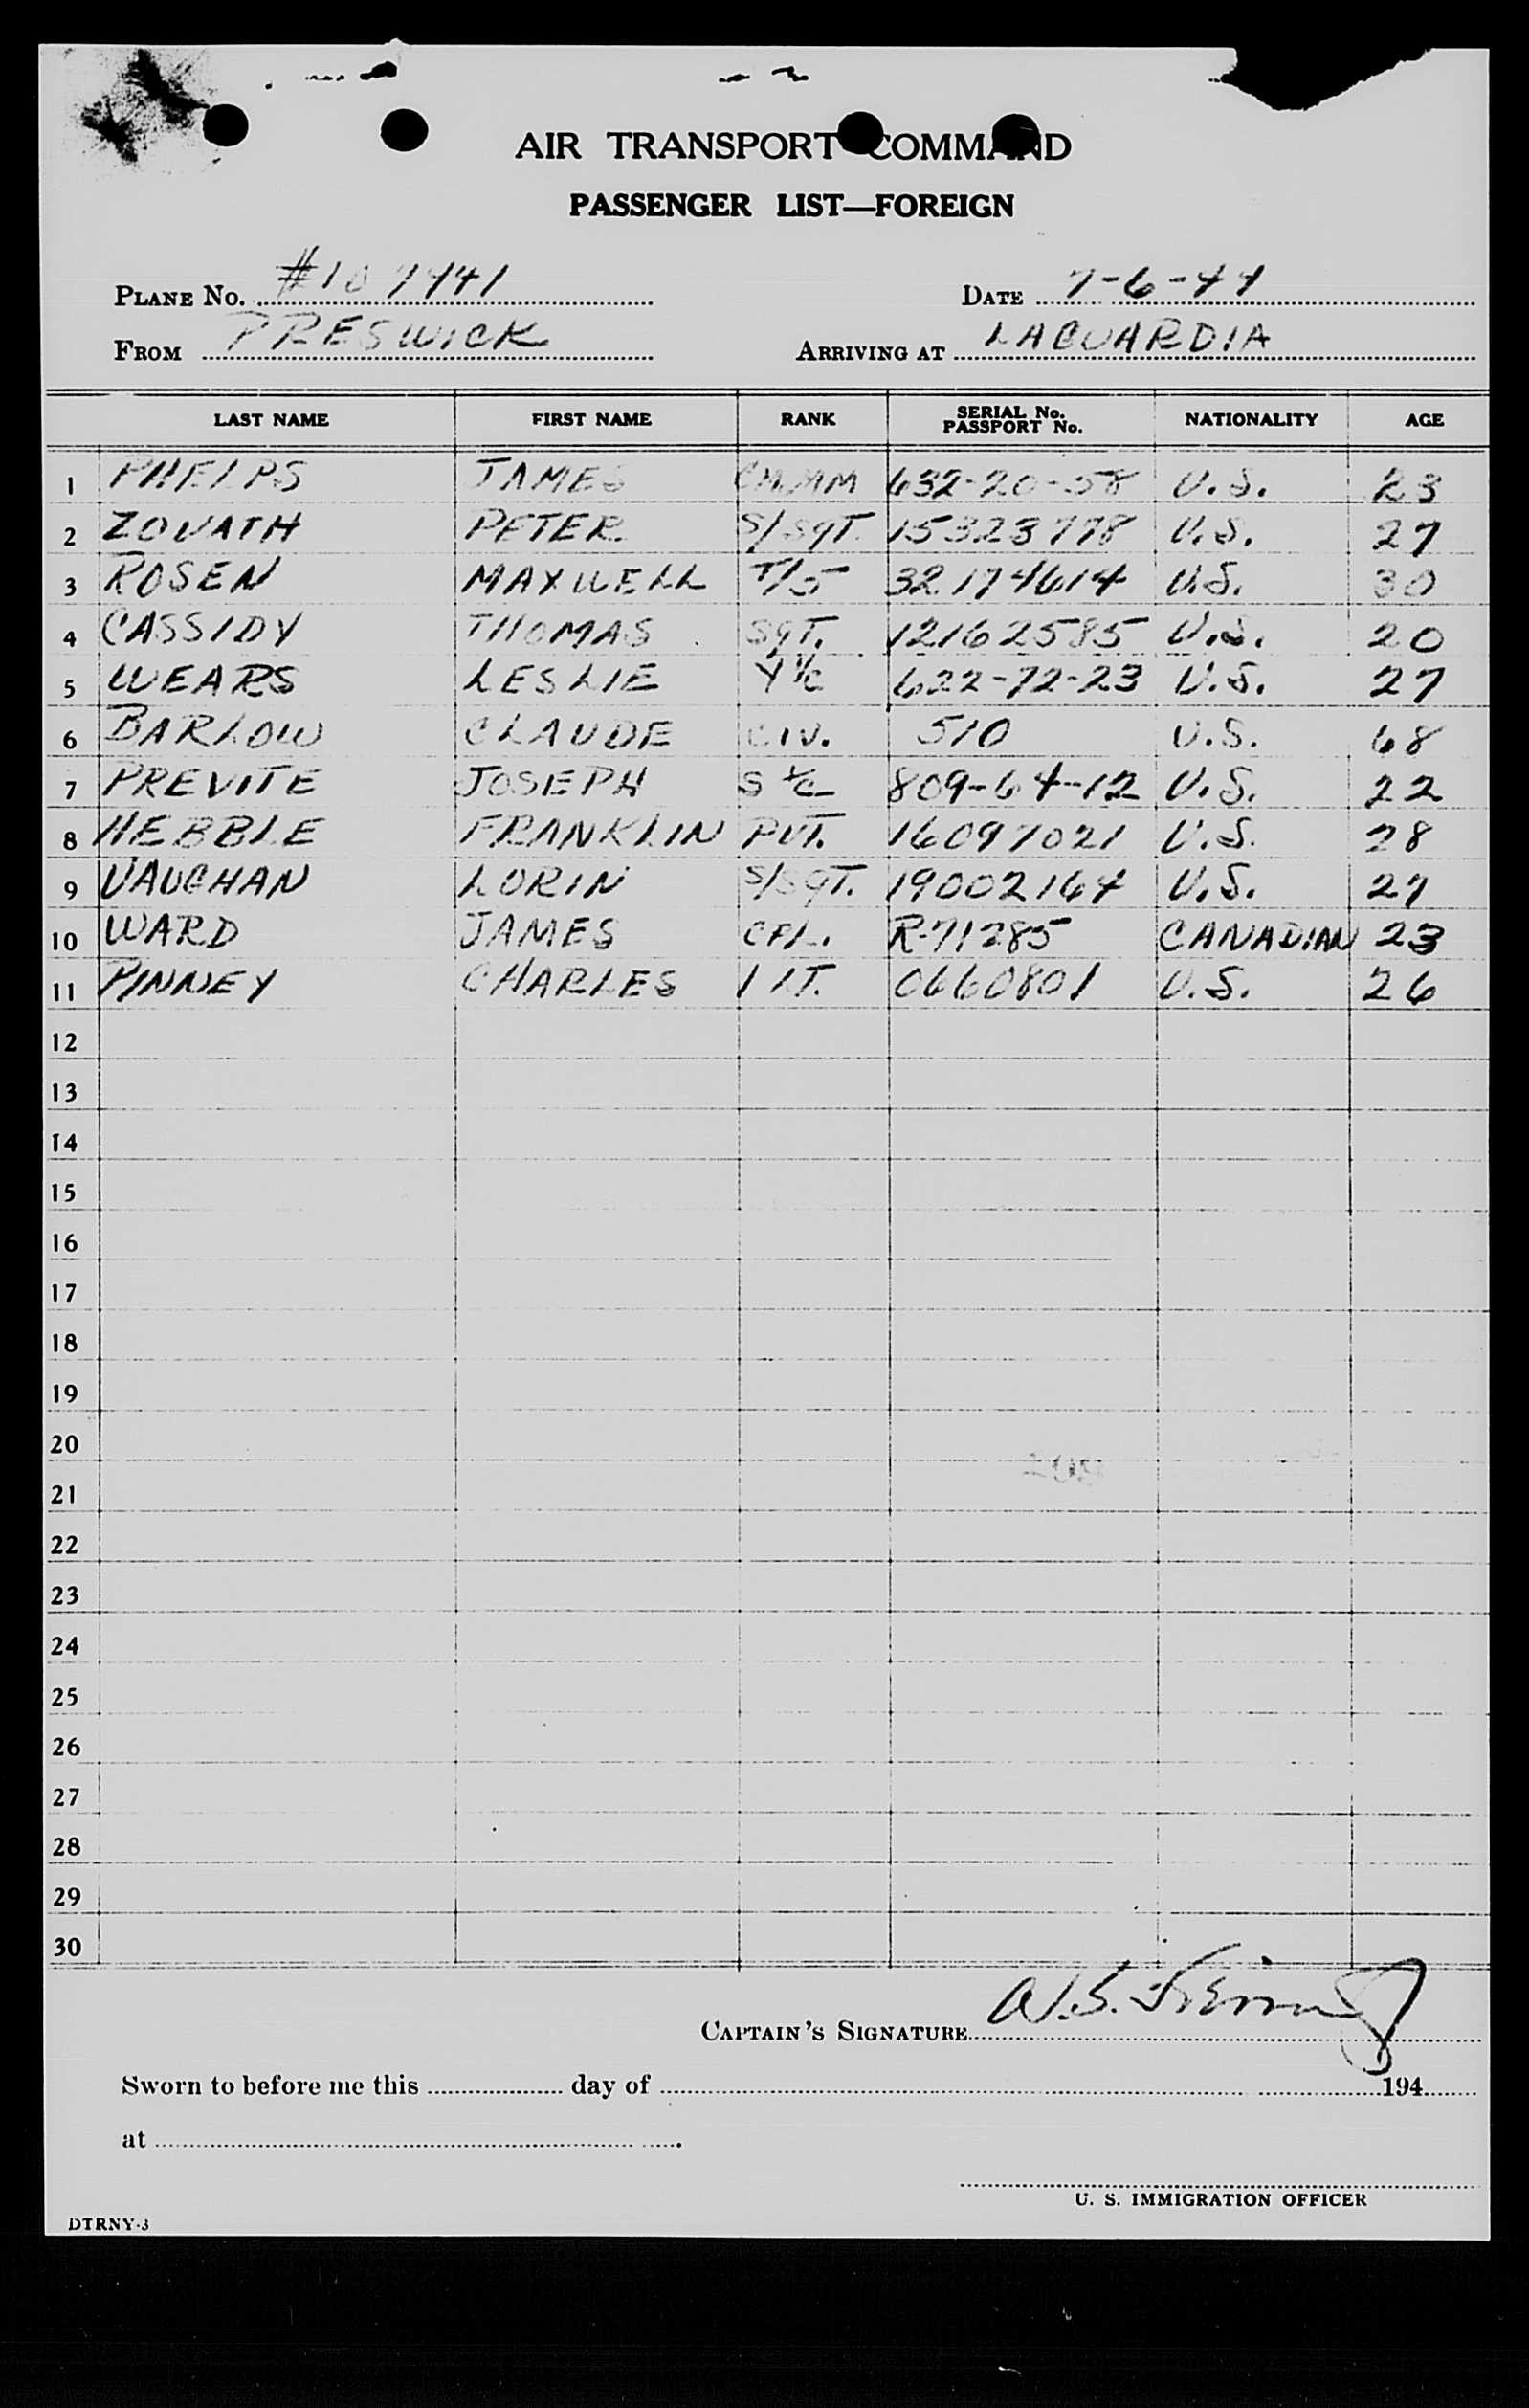 AIR TRANSPORT COMMAND
PASSENGER LIST—FOREIGN
PLANE No. #107441 DATE 7-6-44
FROM PRESWICK ARRIVING AT LAGUARDIA
LAST NAME FIRST NAME RANK SERIAL No. PASSPORT No. NATIONALITY AGE
1 PHELPS JAMES CM.MM 632-20-58 U.S. 23
2 ZOVATH PETER S/SGT. 15323778 U.S. 27
3 ROSEN MAXWELL T/5 32174614 U.S. 30
4 CASSIDY THOMAS SGT. 12162585 U.S. 20
5 WEARS LESLIE Y 1/c 622-72-23 U.S. 27
6 BARLOW CLAUDE CIV. 510 U.S. 68
7 PREVITE JOSEPH S 809-64-12 U.S. 22
8 HEBBLE FRANKLIN PVT. 16097021 U.S. 28
9 VAUGHAN LORIN S/SGT. 19002164 U.S. 27
10 WARD JAMES CPL. R-71285 CANADIAN 23
11 PINNEY CHARLES 1 LT. 0660801 U.S. 26
12
13
14
15
16
17
18
19
20
21
22
23
24
25
26
27
28
29
30
CAPTAIN'S SIGNATURE W.S.
Sworn to before me this day of 194
at .
U. S. IMMIGRATION OFFICER
DTRNY-3